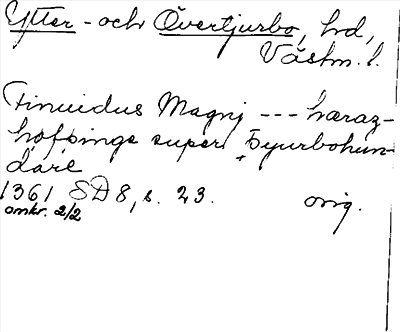 Ytter- och Övertjurbo, hd,
Västm. l.
Finuidus Magnj --- haraz-
höfþinge super Þyurbohun-
dare
1361 SD 8, s. 23. orig.
omkr. 2/2